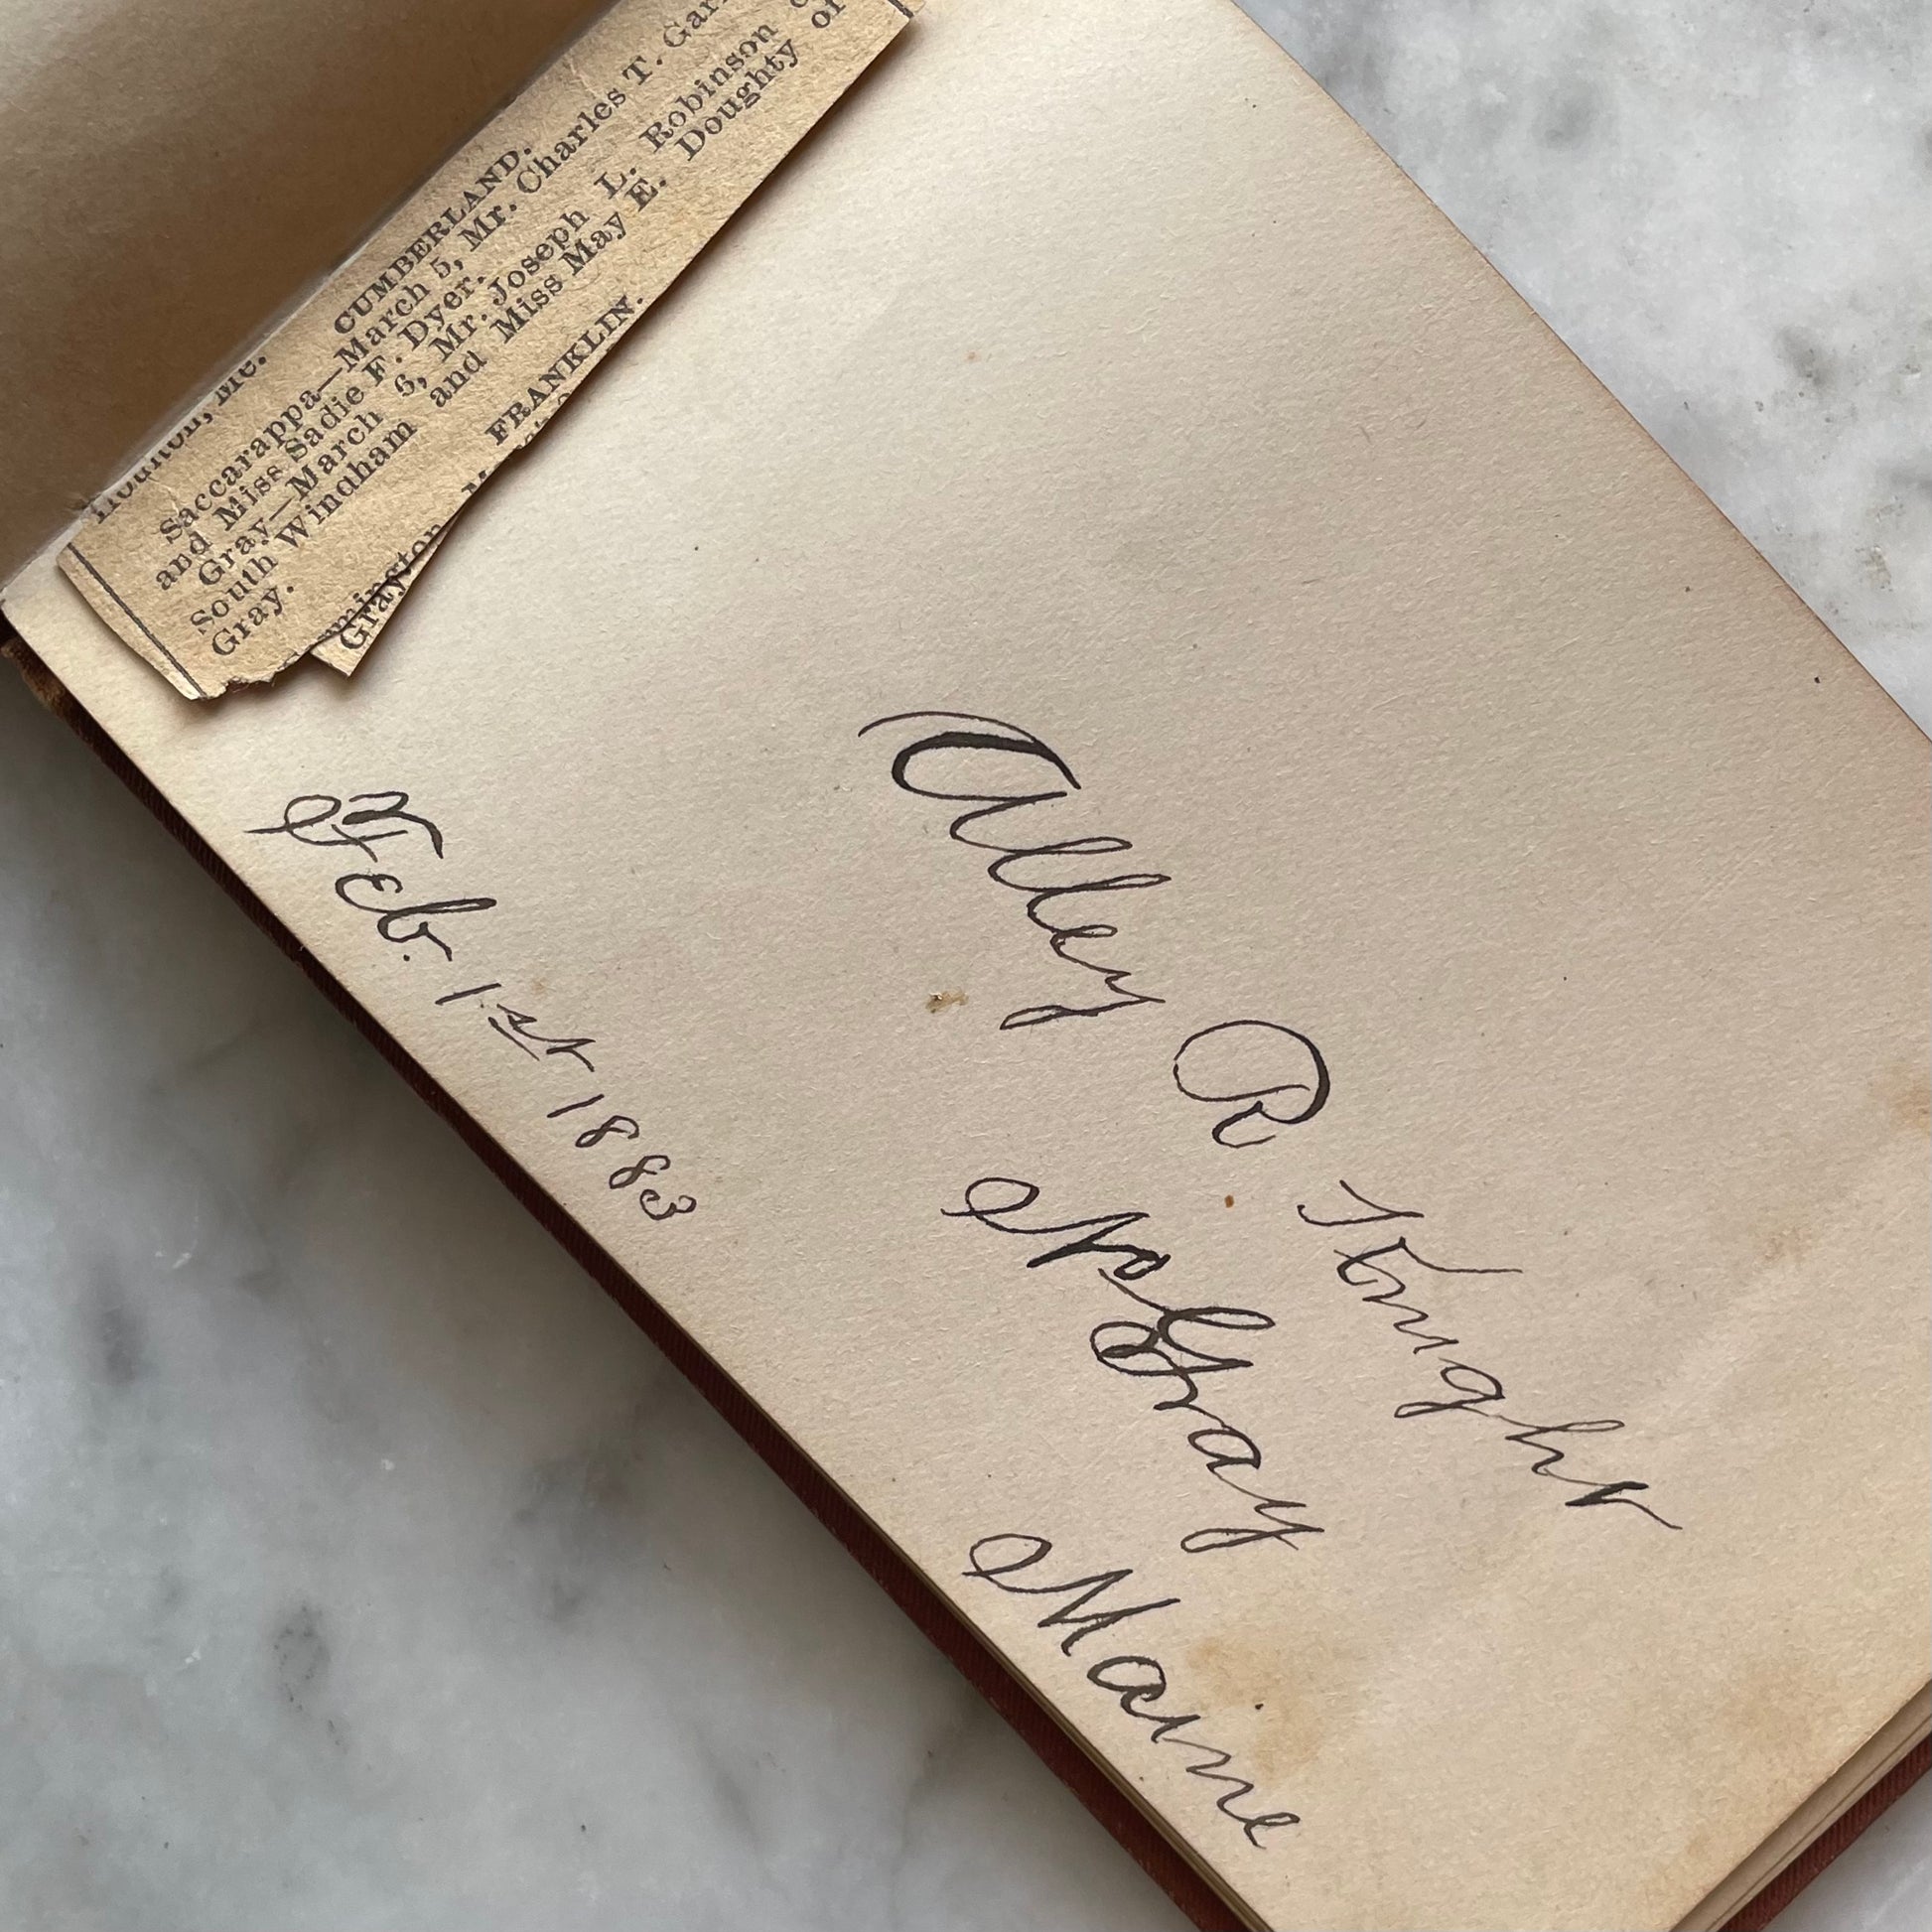 Houlton, Me.
CUMBERLAND.
Saccarappa—March 5, Mr. Charles T.
and Miss Sadie F. Dyer.
Gray—March 6, Mr. Joseph L. Robinson
South Windham and Miss May E. Doughty of
Gray.
FRANKLIN.
Grayston
Alley R. Knight
No Gray
Maine
Feb. 1st 1883